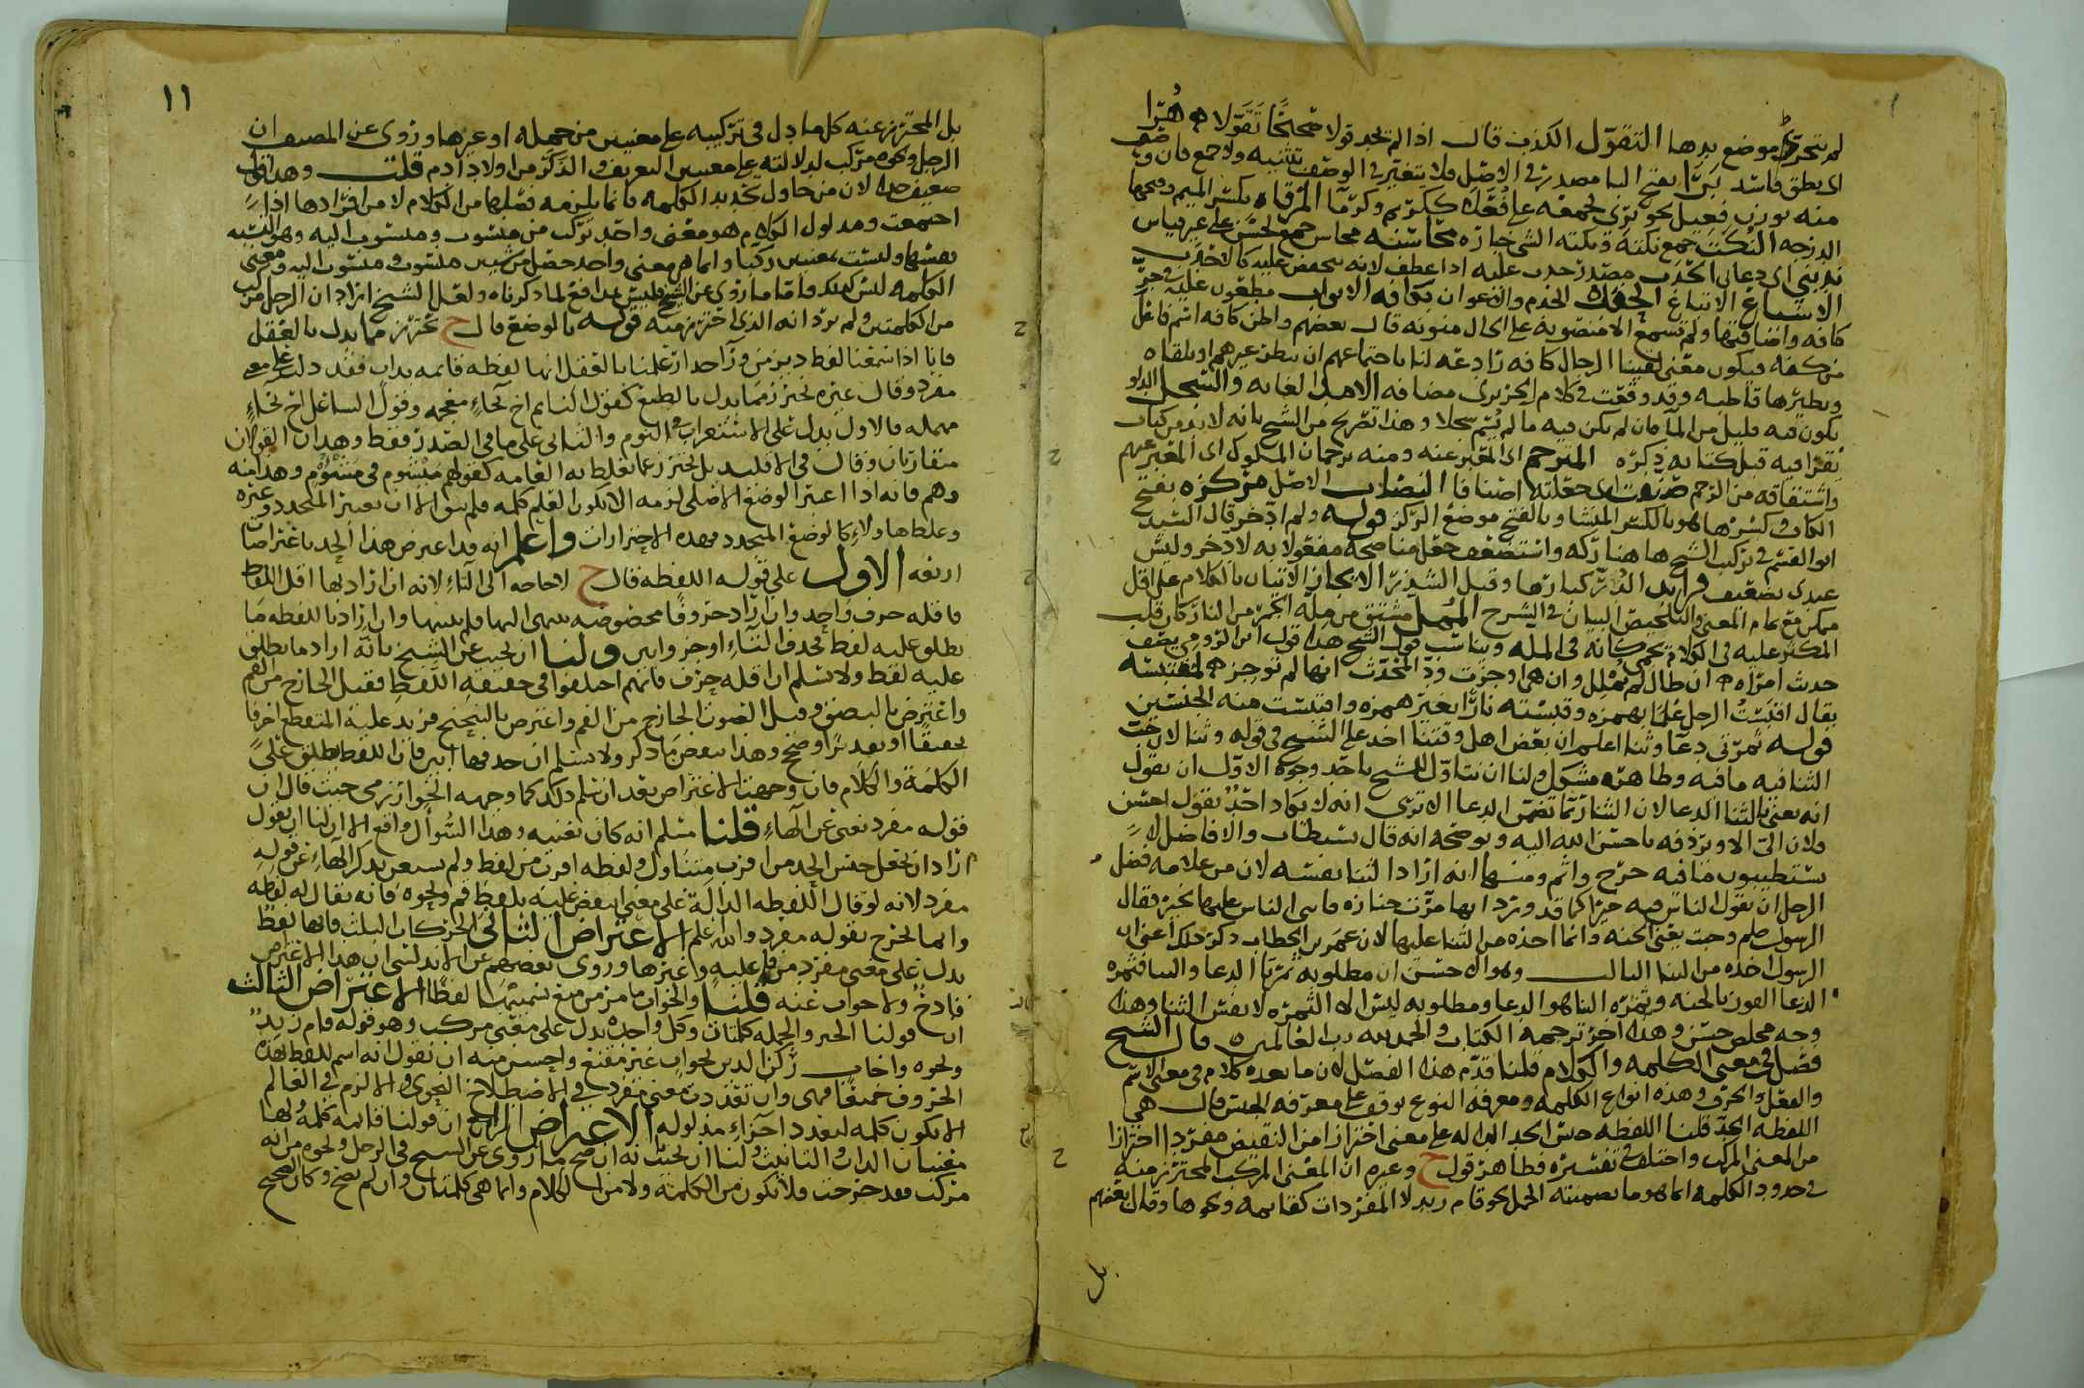 موضع يدها التقول الكذب قال اذا لم تجد قولا صحيحا تقولا هرا
اي يطلق فاسد برا بفتح البا مصدر في الاصل فلا يتغير في الوصف بتثنيه ولا جمع فان وصف
منه بوزن فعيل نحو بري لجمعه على فعلا ككريم وكرما المرقاه بكسر الميم وفتحها
الدرجه النكت جمع نكته محاسنه محاسن جمع لحسن على غير قياس
اي دعاني الحدب مصدر حدب عليه اذا عطف لانه
الاتساع الاتباع الحفده الخدم والاعوان بكافه الابواب
كافه واضافتها ولم تسمع الا منصوبة على الحال منونه قال بعضهم واظن كافه اسم فاعل
من كفه فيكون معنى لقينا الرجال كافه رادعه لنا باجتماعهم ان نظن غيرهم او نلقاه
ونظيرها قاطبه وقد وقعت في كلام الحريري مضافه الامد الغايه والسجل الدلو
يكون فيه قليل من الما فان لم يكن فيه ما لم يسم سجلا وهذا تصريح من الشيخ بانه لا بد من كتاب
يقرا فيه قبل كتابه ذكره المترجم اي المعبر عنه ومنه ترجمان الملوك اي المعبر عنهم
واشتقاقه من الرجم صنفت اي جعلته اصنافا النصاب الاصل مركزه بفتح
الكاف وكسرها فهو بالكسر المنشا وبالفتح موضع الركز قوله ولم ادخر قال السيد
ابو القسم في تركيب الشيخ هاهنا ركه واستضعف جعل مناصحة مفعولا به لادخر وليس
عندي بضعيف فرايد الدر كبارها وقيل الشذر الايجاز الاتيان بالكلام على اقل
ممكن مع تمام المعنى والتلخيص البيان في الشرح الممل مشتق من مله الجمر من النار كان قلب
المكثر عليه في الكلام يحمى كانه في المله ويناسب قول الشيخ هذا قول ابن الرومي يصف
حديث امراه ان طال لم يملل وان هي اوجزت ود المحدث انها لم توجز المقتبسه
يقال اقبست الرجل علما بهمزه وقبسته نارا بغير همزه واقتبست منه الجنسين
قوله ثمرتي دعا وثنا اعلم ان بعض اهل وقتنا اخذ على الشيخ في قوله وثنا لان حب
الثنا فيه ما فيه وظاهره مشكل ولنا ان نتاول للشيخ باحد وجوه الاول ان نقول
انه يعني بالثنا الدعا لان الثنا ربما تضمن الدعا الا ترى انه لا يكاد احد يقول احسن
فلان الي الا ويردفه باحسن الله اليه ويوضحه انه قال يستطاب والافاضل لا
يستطيبون ما فيه حرج واثم ومنها انه اراد الثنا نفسه لان من علامه فضل
الرجل ان يقول الناس فيه خيرا كما قد ورد انها مرت جنازه فاثنى الناس عليها بخير فقال
الرسول صلم وجبت يعني الجنه وانما اخذه من الثنا عليها لان عمر بن الخطاب ذكر ذلك اعني ان
الرسول اخذه من الثنا الثالث وهو اله حسن ان مطلوبه ثمرتا الدعا والثنا فثمره
الدعا الفوز بالجنه وثمره الثنا هو الدعا ومطلوبه ليس الا الثمره لا نفس الثنا وهذا
وجه مخلص حسن وهذا اخر ترجمه الكتاب والحمد لله رب العالمين قال الشيخ
فصل في معنى الكلمه والكلام قلنا قدم هذا الفصل لان ما بعده كلام في معنى الاسم
والفعل والحرف وهذه انواع الكلمه ومعرفه النوع توقف على معرفه الجنس قال هي
اللفظه الحد قلنا اللفظه جنس الحد الداله على معنى احترازا من النقيض مفرد احترازا
من المعنى المركب واختلف في تفسيره فظاهر قول ح وغيره ان المعنى المركب المحترز منه
في حدود الكلمه انما هو ما تضمنته الجمل نحو قام زيد لا المفردات كقايمه ونحوها وقال بعضهم
بل
١١
بل المحترز عنه كل ما دل في تركيبه على معنيين من جمله او غيرها وروي عن المصنف ان
الرجل ونحوه مركب لدلالته على معنيين التعريف والذكر من اولاد ادم قلت وهذا قول
ضعيف جدا لان من حاول تحديد الكلمه فانما يلزمه فصلها من الكلام لا من افرادها اذا
اجتمعت ومدلول الكلام هو معنى واحد تركب من منسوب ومنسوب اليه وهو النسبه
نفسها وليست بمعنيين ركبا وانما هي معنى واحد حصل من شيين منسوب ومنسوب اليه ومعنى
الكلمه ليس كذلك فاما ما روي عن الشيخ فليس بمدافع لما ذكرناه ولعل الشيخ اراد ان الرجل مركب
من الكلمتين ولم يرد انه الذي احترز منه قوله بالوضع قال ح تحترز مما يدل بالعقل
فانا اذا سمعنا لفظ ديز من ورآ جدار علمنا بالعقل انها لفظه قايمه بذات فقد دلت على معنى
مفرد وقال غيره تحترز مما يدل بالطبع كقول النايم اخ بخآءٍ معجمه وقول الساعل اح بحآءٍ
مهمله فالاول يدل على الاستغراق في النوم والثاني على ما في الصدر فقط وهذان القولان
متقاربان وقال في الاقليد بل تحترز عما تغلط به العامه كقولهم ميشوم في مشؤوم وهذا منه
وهم فانه اذا اعتبر الوضع الاصلي لزمه الا تكون العلم كلمه فلم يبق الا ان يعتبر المتجدد وغيره
وغلط هاولاء كالوضع المتجدد فهذه الاحترازات واعلم انه قد اعترض هذا الحد باعتراضات
اربعه الاول على قوله اللفظه قال ح لا حاجه الى التآء لانه ان اراد بها اقل اللفظ
فاقله حرف واحد وان اراد حروفا مخصوصه ينتهى اليها فلم يبينها وان اراد باللفظه ما
يطلق عليه لفظ فحذف التآء اوجز وابين ولنا ان نجيب عن الشيخ بانه اراد ما يطلق
عليه لفظ ولا نسلم ان اقله حرف فانهم اختلفوا في حقيقه اللفظ فقيل الخارج من الفم
واعترض بالبصق وقيل الصوت الخارج من الفم واعترض بالتنحنح فزيد عليه المتقطع احرفا
تحقيقا او تقديرا وضح وهذا ينقض ما ذكر ولا نسلم ان حذفها ابين فان اللفظ يطلق على
الكلمة والكلام فان وجهت الاعتراض بعد ان نسلم ذلك كما وجهه الخوارزمي حيث قال ان
قوله مفرد يغني عن الهاءِ قلنا مسلم انه كان يغنيه وهذا السؤال واقع الا ان لنا ان نقول
اراد ان يجعل جنس الحد من اقرب متناول ولفظه اقرب من لفظ ولم يستغن بذكر الهاء عن قوله
مفرد لانه لو قال اللفظه الدالة على معنى لنقض عليه بلفظ قم ونحوه فانه يقال له لفظه
وانما تخرج بقوله مفرد والله اعلم الاعتراض الثاني الحركات الثلث فانها لفظ
يدل على معنى مفرد من فاعليه وغيرها وروى بعضهم عن الاندلسي ان هذا الاعتراض
قادح ولا جواب عنه قلنا والجواب ما مر من منع تسميتها لفظا الاعتراض الثالث
ان قولنا الخبر والجمله كلمتان وكل واحده تدل على معنى مركب وهو قوله قام زيد
ونحوه واجاب ركن الدين بجواب غير مقنع واحسن منه ان نقول انه اسم للفظ هذه
الحروف جميعا فهي وان تعددت معنى مفرد في الاصطلاح النحوي والا لزم في العالم
الا يكون كلمه لتعدد اجزاءِ مدلوله الاعتراض الرابع ان قولنا قايمه كلمه ولها
معنيان الذات والتانيث ولنا ان نجيب بانه ان صح ما روي عن الشيخ في الرجل ونحوه من انه
مركب فقد خرجت فلا تكون من الكلمة ولا من الكلام وانما هي كلمتان وان لم يصح وكان الصحيح